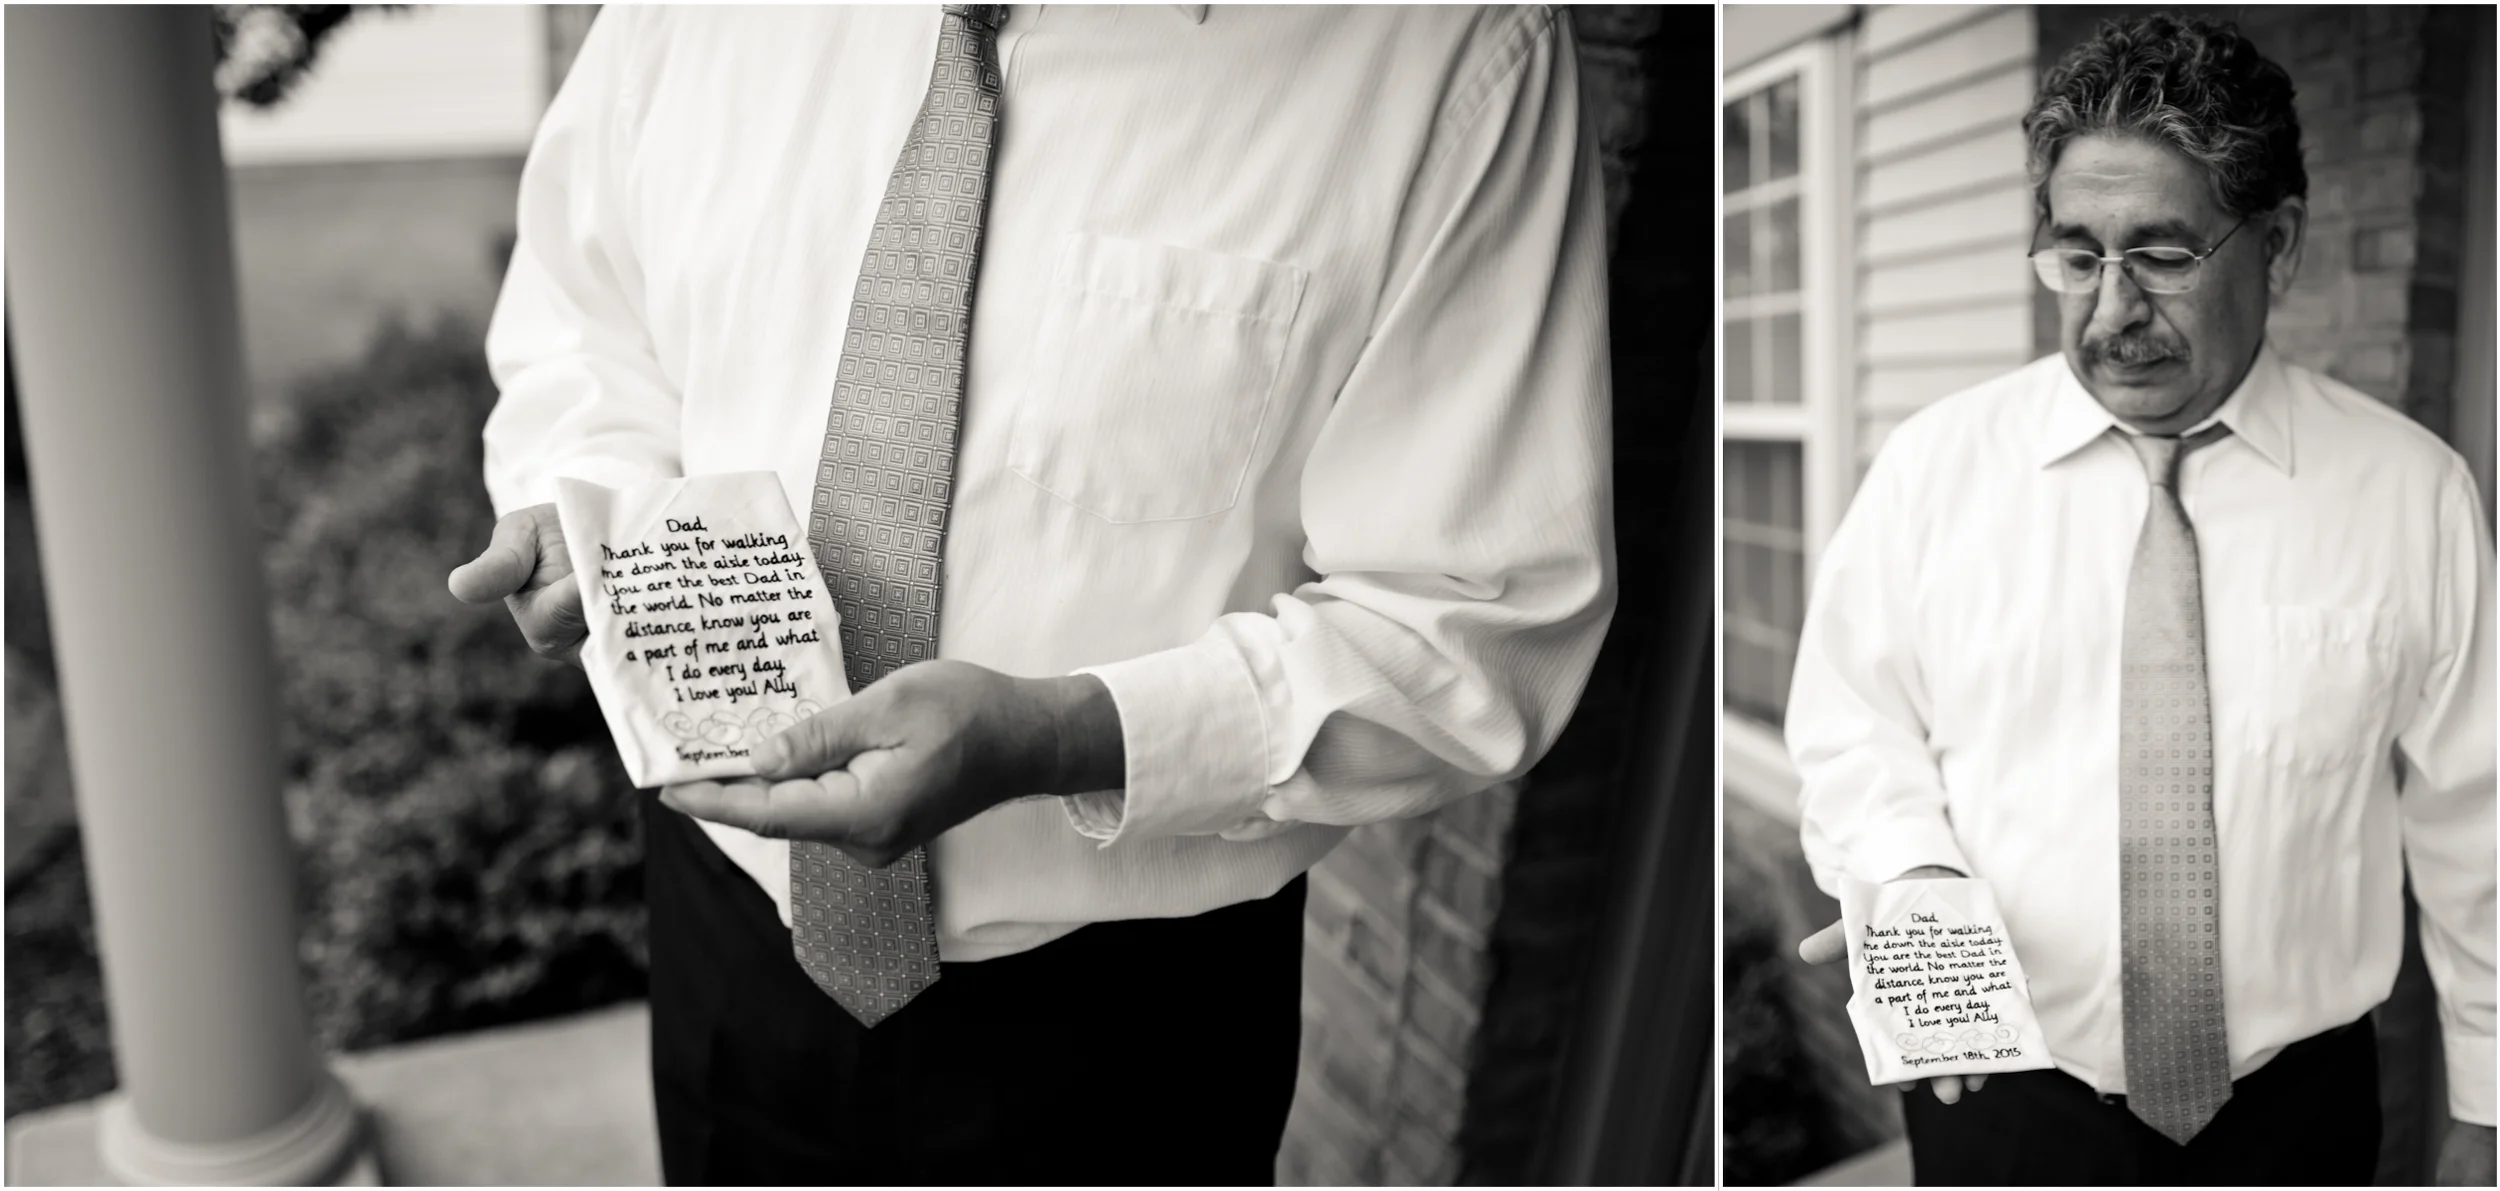 Dad,
Thank you for walking
me down the aisle today.
You are the best Dad in
the world. No matter the
distance, know you are
a part of me and what
I do every day.
I love you! Ally
September
Dad,
Thank you for walking
me down the aisle today.
You are the best Dad in
the world. No matter the
distance, know you are
a part of me and what
I do every day.
I love you! Ally
September 18th, 2015